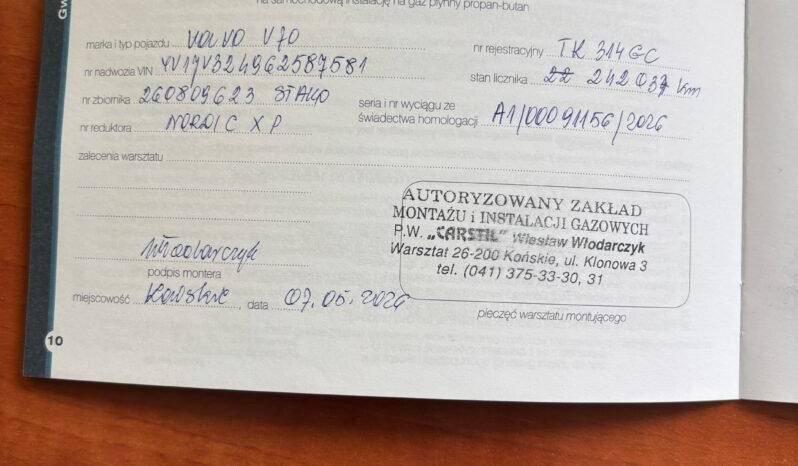 na samochodową instalację na gaz płynny propan-butan
marka i typ pojazdu VOLVO V70
nr rejestracyjny TK 314GC
nr nadwozia VIN YV1JV324962587581
stan licznika 22 242 037 km
nr zbiornika 260809623 STAKO
seria i nr wyciągu ze świadectwa homologacji A1/00091156/2026
nr reduktora NORDIC XP
zalecenia warsztatu
AUTORYZOWANY ZAKŁAD
MONTAŻU i INSTALACJI GAZOWYCH
P.W. „CARSTIL" Wiesław Włodarczyk
Warsztat 26-200 Końskie, ul. Klonowa 3
tel. (041) 375-33-30, 31
Włodarczyk
podpis montera
miejscowość Końskie, data 07.05.2026
pieczęć warsztatu montującego
10
Gw